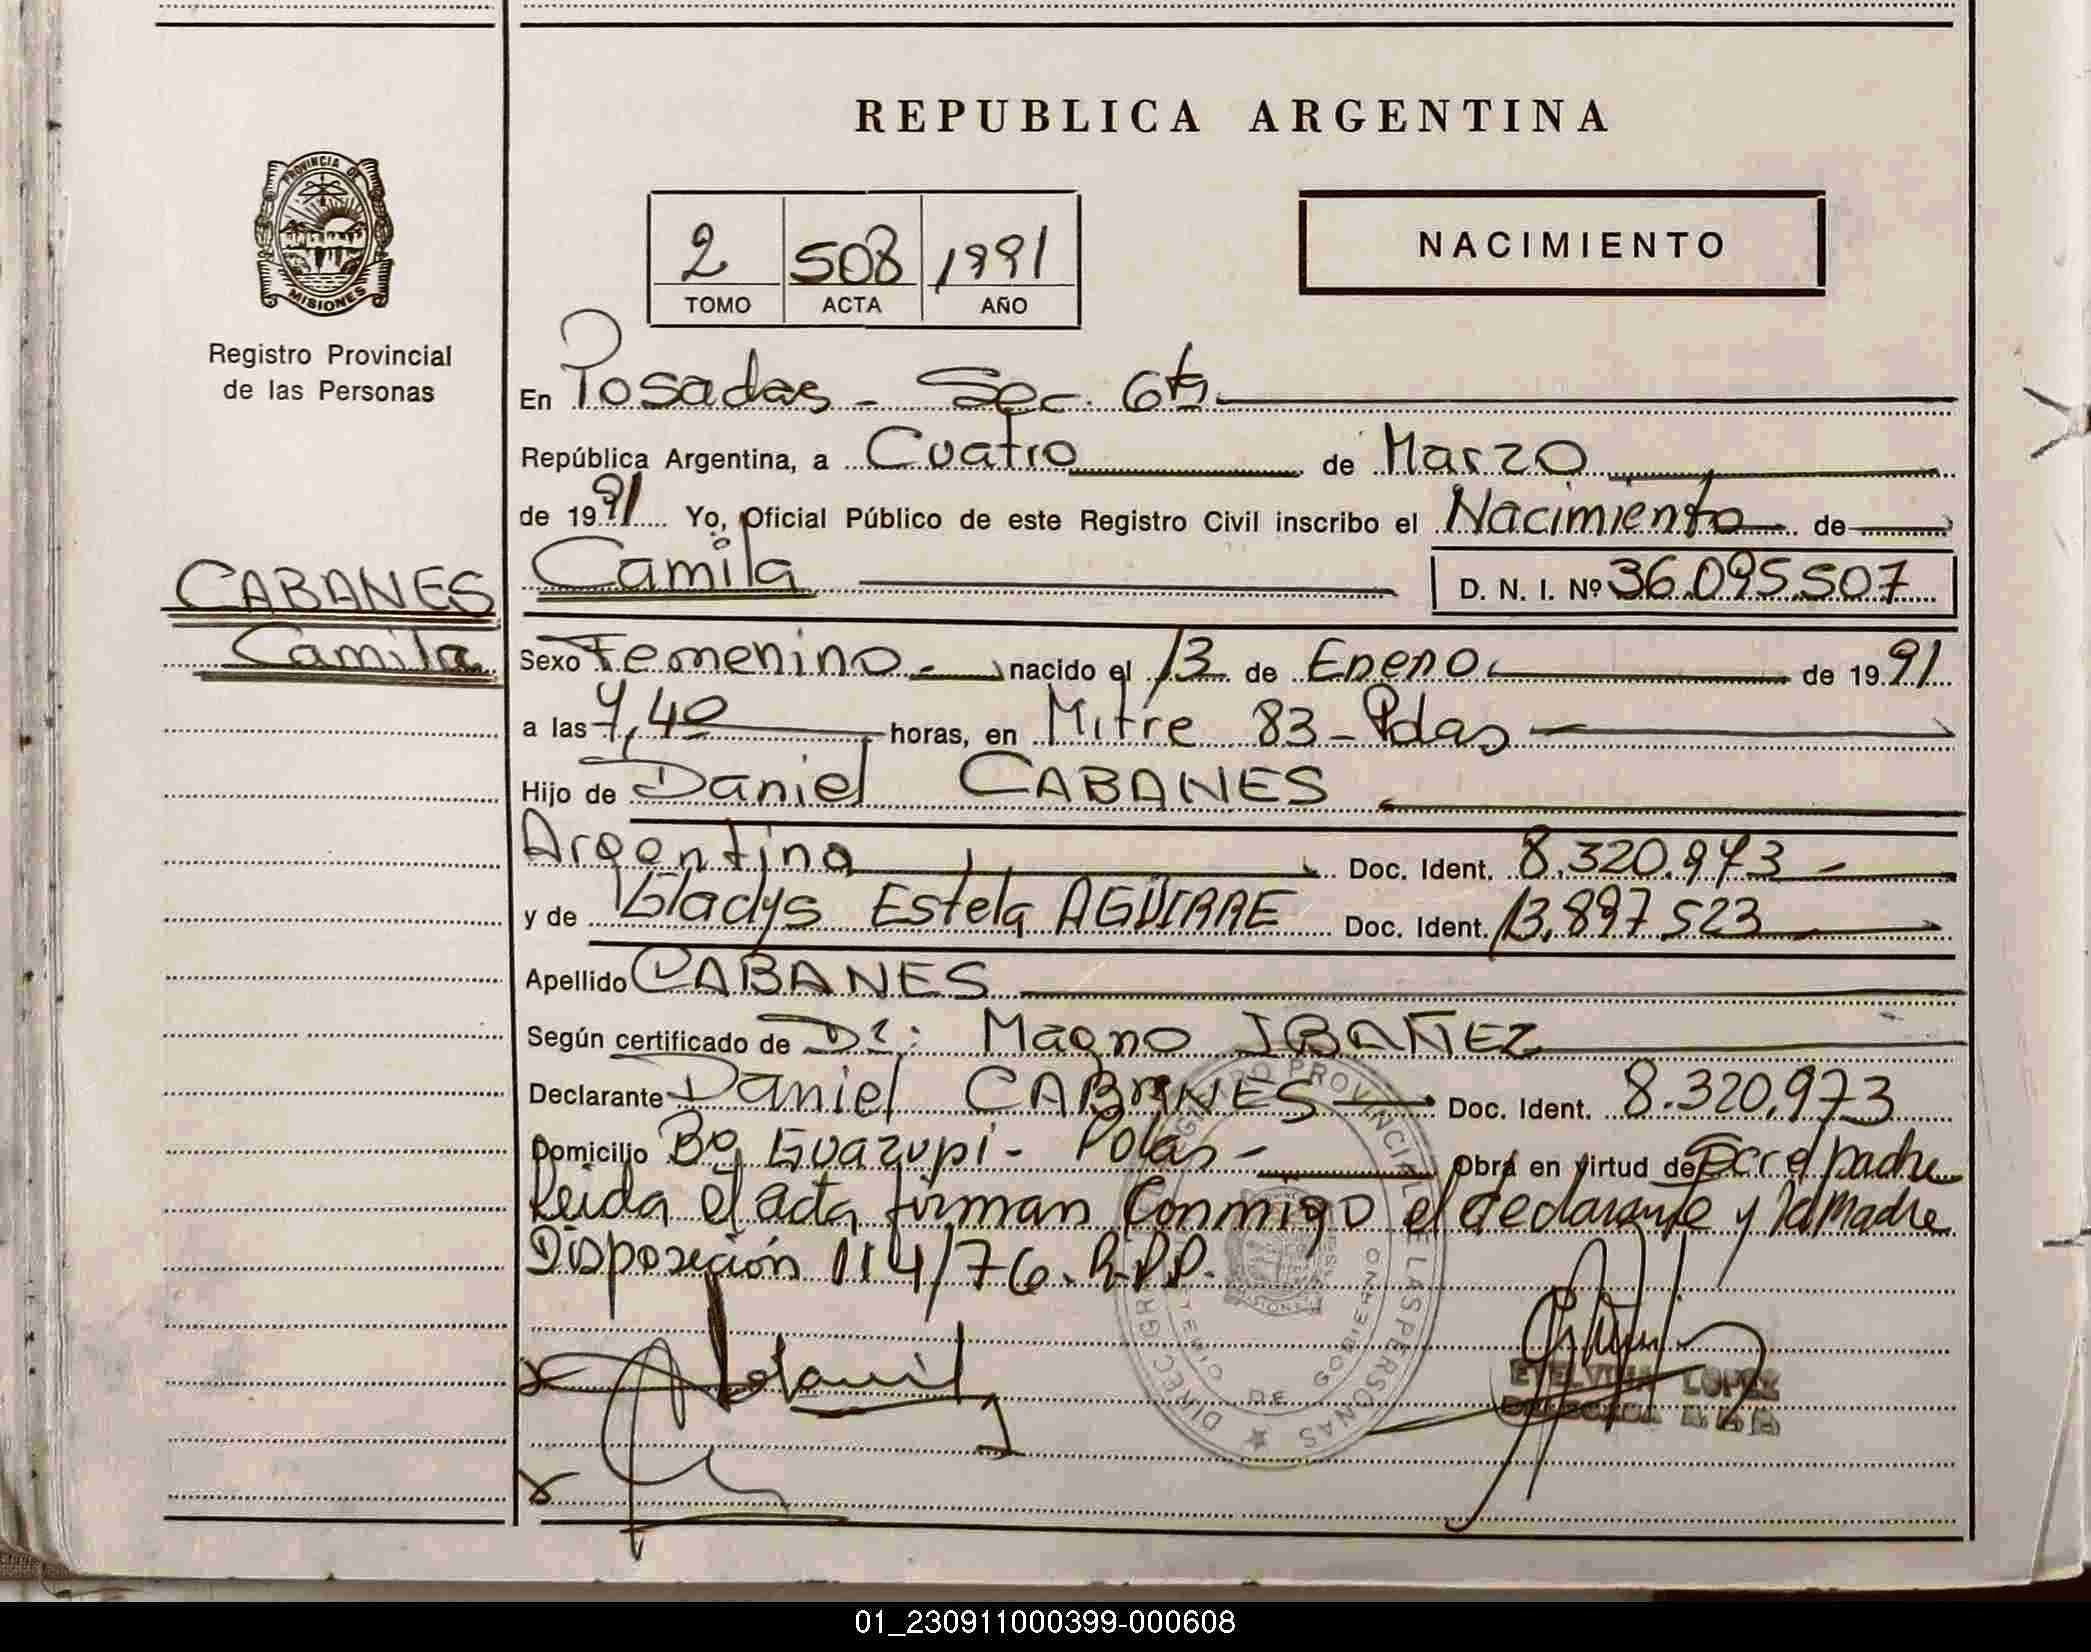 REPUBLICA ARGENTINA
PROVINCIA DE
MISIONES
Registro Provincial
de las Personas
2 508 1991
TOMO ACTA AÑO
NACIMIENTO
En Posadas - Sec. 6ta
República Argentina, a Cuatro de Marzo
de 1991 Yo, Oficial Público de este Registro Civil inscribo el Nacimiento de
CABANES
Camila
Camila D. N. I. Nº 36.095.507
Sexo Femenino nacido el 13 de Enero de 1991
a las 7,40 horas, en Mitre 83 - Pdas
Hijo de Daniel CABANES
Argentina Doc. Ident. 8.320.973
y de Gladys Estela AGUIRRE Doc. Ident. 13.897.523
Apellido CABANES
Según certificado de Dr: Magno IBAÑEZ
Declarante Daniel CABANES Doc. Ident. 8.320.973
Domicilio Bº Guazupi - Pdas - Obra en virtud de Ser el padre
Leida el acta firman conmigo el declarante y la madre
Disposición 114/76. R.P.P.
DIRECC GRAL REGISTRO PROVINCIAL DE LAS PERSONAS
DE GOBIERNO
MISIONES
LOPEZ
01_230911000399-000608